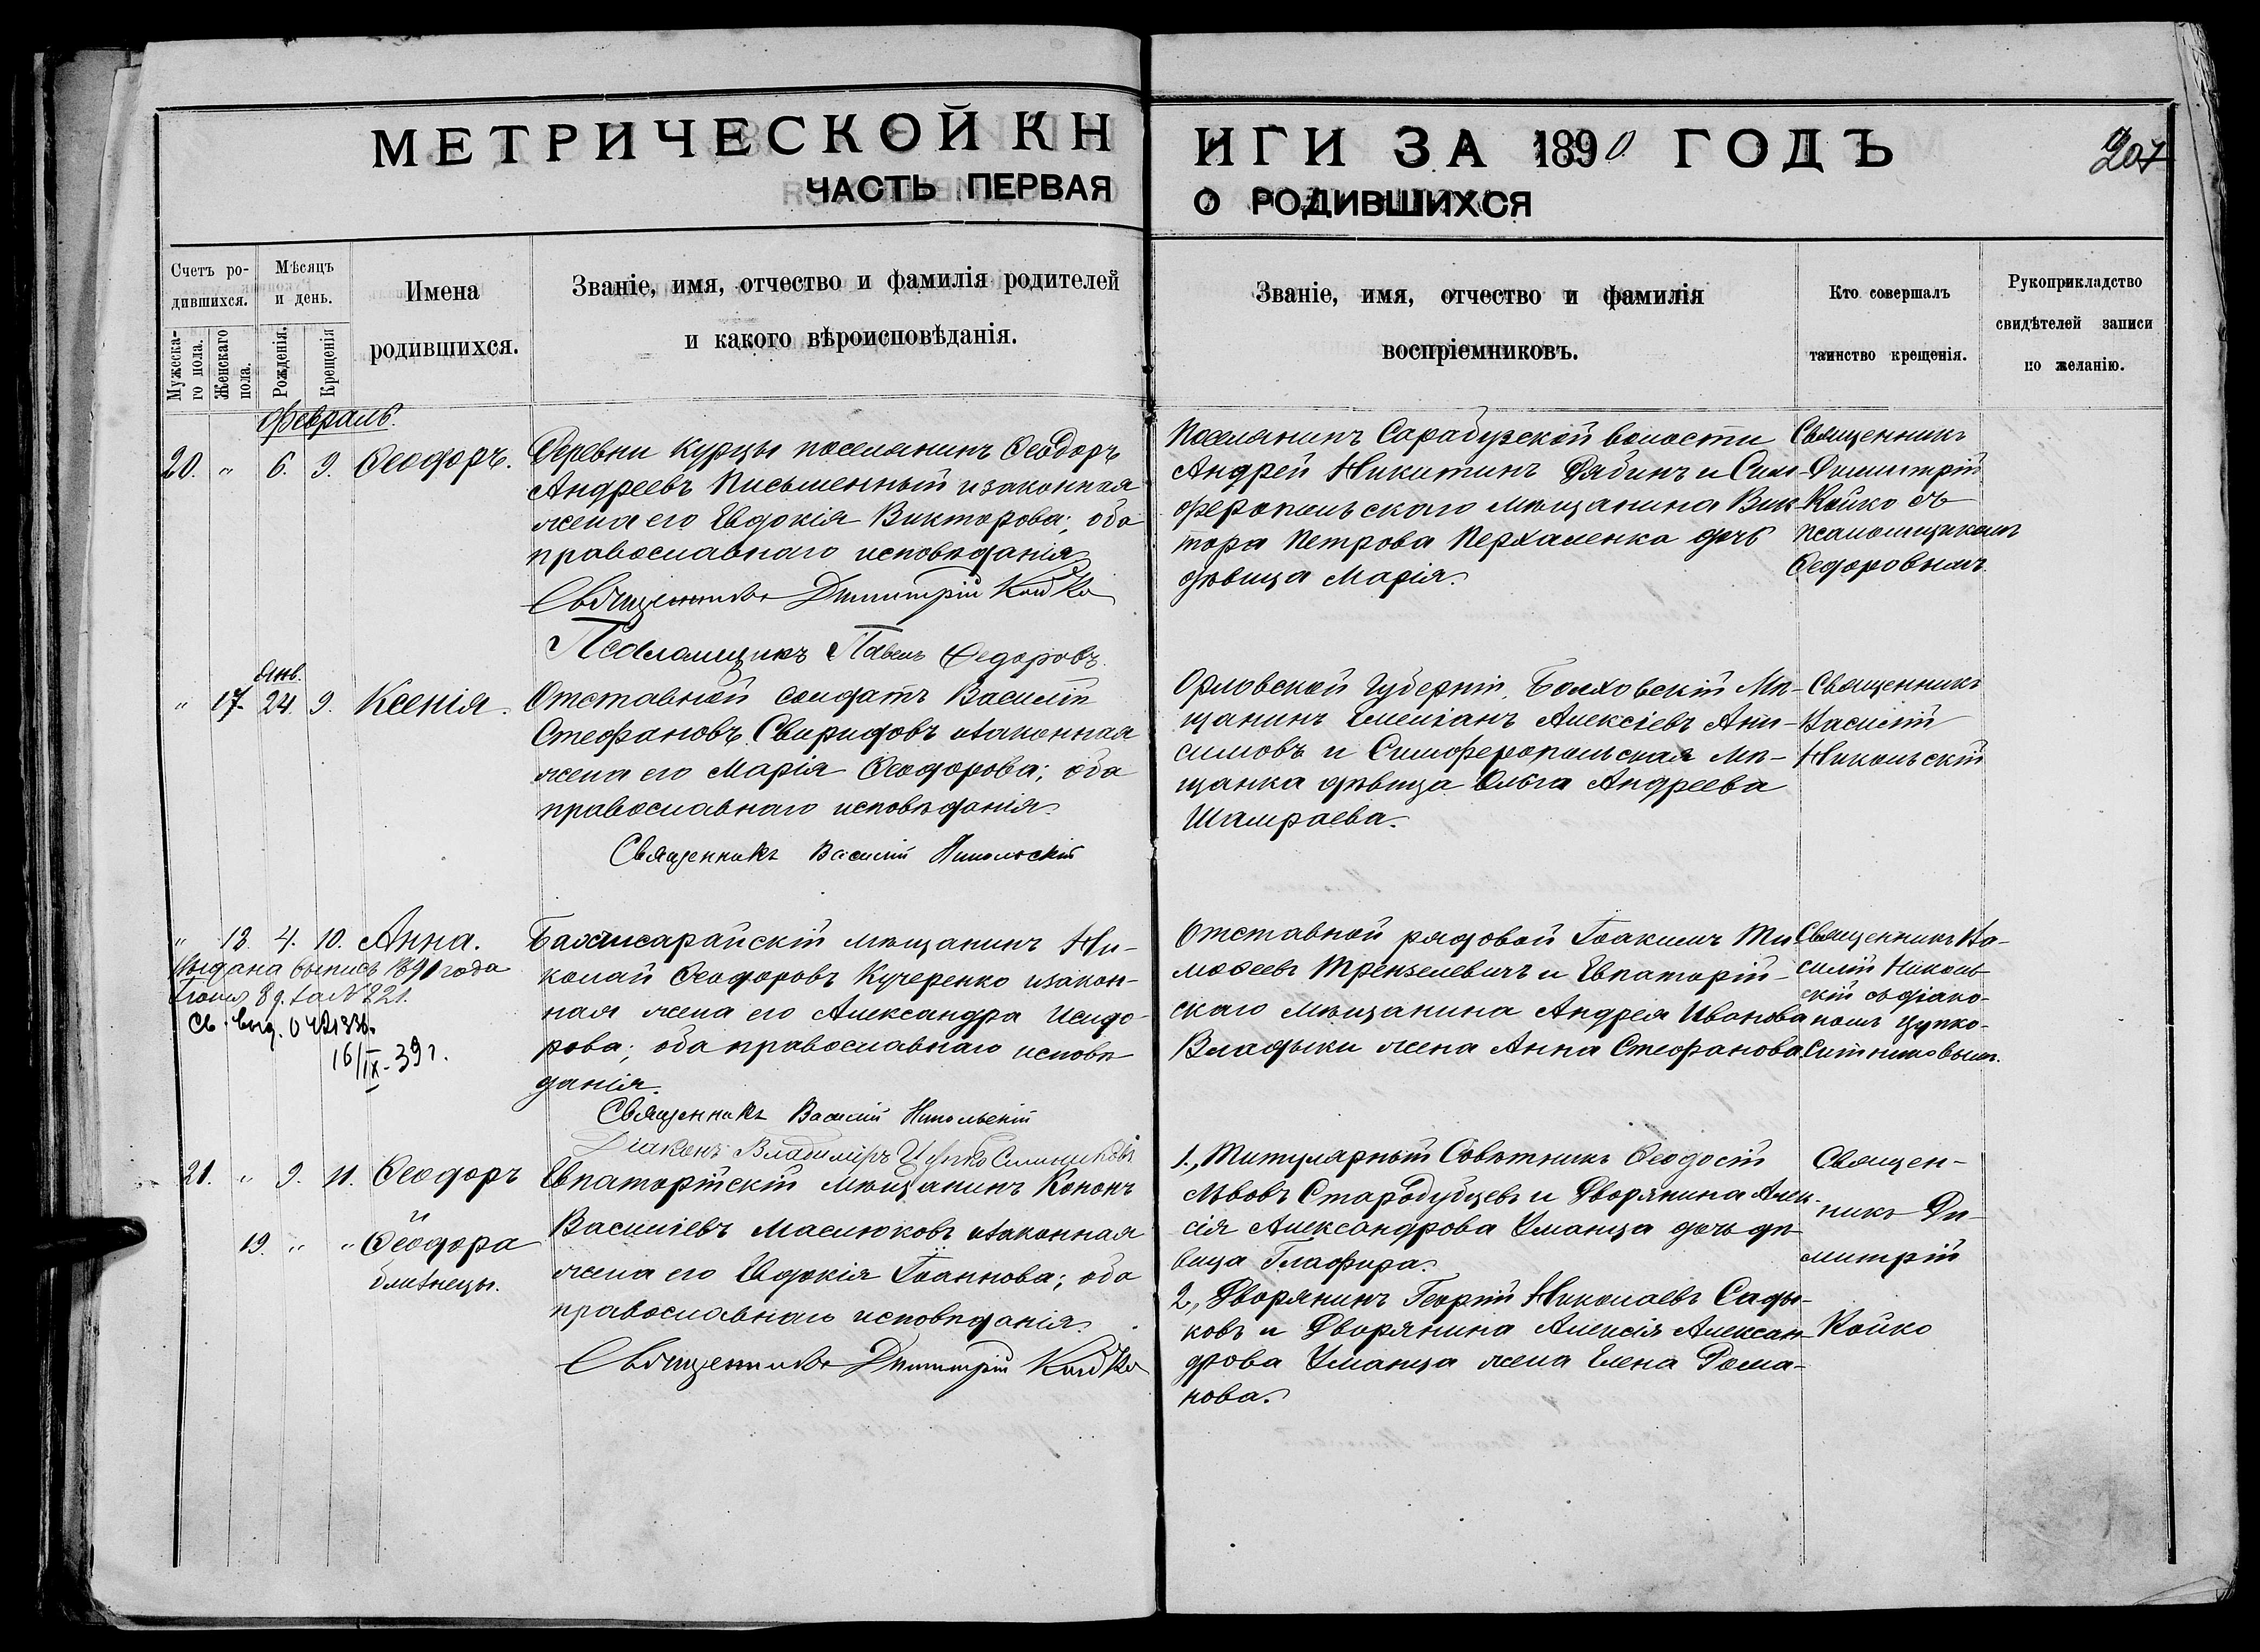 МЕТРИЧЕСКОЙ КНИГИ ЗА 1890 ГОДЪ
207
ЧАСТЬ ПЕРВАЯ О РОДИВШИХСЯ
Счетъ ро-
дившихся.
Мужеска-
го пола.
Женскаго
пола.
Мѣсяцъ
и день.
Рожденія.
Крещенія
Имена
родившихся.
Званіе, имя, отчество и фамилія родителей
и какого вѣроисповѣданія.
Званіе, имя, отчество и фамилія
воспріемниковъ.
Кто совершалъ
таинство крещенія.
Рукоприкладство
свидѣтелей записи
по желанію.
Февраль.
20. " 6. 9. Ѳеодоръ.
Деревни Курцы поселянинъ Ѳеодоръ
Андреевъ Письменный и законная
жена его Евдокія Викторова; оба
православнаго исповѣданія
Священникъ Димитрій Койко
Псаломщикъ Павелъ Федоровъ.
Поселянинъ Сарабузской волости
Андрей Никитинъ Рябинъ и Сим-
феропольскаго мѣщанина Вик-
тора Петрова Перхаленка дочь
дѣвица Марія.
Священникъ
Димитрій
Койко съ
псаломщикомъ
Ѳедоровымъ.
Янв.
" 17. 24. 9. Ксенія.
Отставной солдатъ Василій
Стефановъ Свиридовъ и законная
жена его Марія Ѳеодорова; оба
православнаго исповѣданія.
Священникъ Василій Никольскій
Орловской Губерніи, Болховскій Мѣ-
щанинъ Емеліанъ Алексіевъ Ани-
симовъ и Симферопольская Мѣ-
щанка дѣвица Ольга Андреева
Шамраева.
Священникъ
Василій
Никольскій
" 18. 4. 10. Анна.
Выдана выпись 1891 года
8 д. за № 221.
Св. выд.
16/IX-39г.
Бахчисарайскій мѣщанинъ Ни-
колай Ѳеодоровъ Кучеренко и закон-
ная жена его Александра Исидо-
рова; оба православнаго исповѣ
данія.
Священникъ Василій Никольскій
Діаконъ Владиміръ Цупко Ситниковъ
Отставной рядовой Іоакимъ Ти
моѳеевъ Трензелевичъ и Евпаторій-
скаго мѣщанина Андрея Иванова
Владыки жена Анна Стефанова
Священникъ Ва-
силій Николь-
скій съ діако-
номъ Цупко-
Ситниковымъ.
21. " 9. 11. Ѳеодоръ
и
19. " " Ѳеодора
близнецы.
Евпаторійскій мѣщанинъ Кононъ
Василіевъ Маслюковъ и законная
жена его Евдокія Іоаннова; оба
православнаго исповѣданія.
Священникъ Димитрій Койко
1., Титулярный Совѣтникъ Ѳеодосій
Львовъ Стародубцевъ и Дворянина Алек-
сія Александрова Уманца дочь дѣ-
вица Глафира.
2., Дворянинъ Георгій Николаевъ Сады-
ковъ и Дворянина Алексія Алексан-
дрова Уманца жена Елена Рома-
нова.
Священ-
никъ Ди-
митрій
Койко